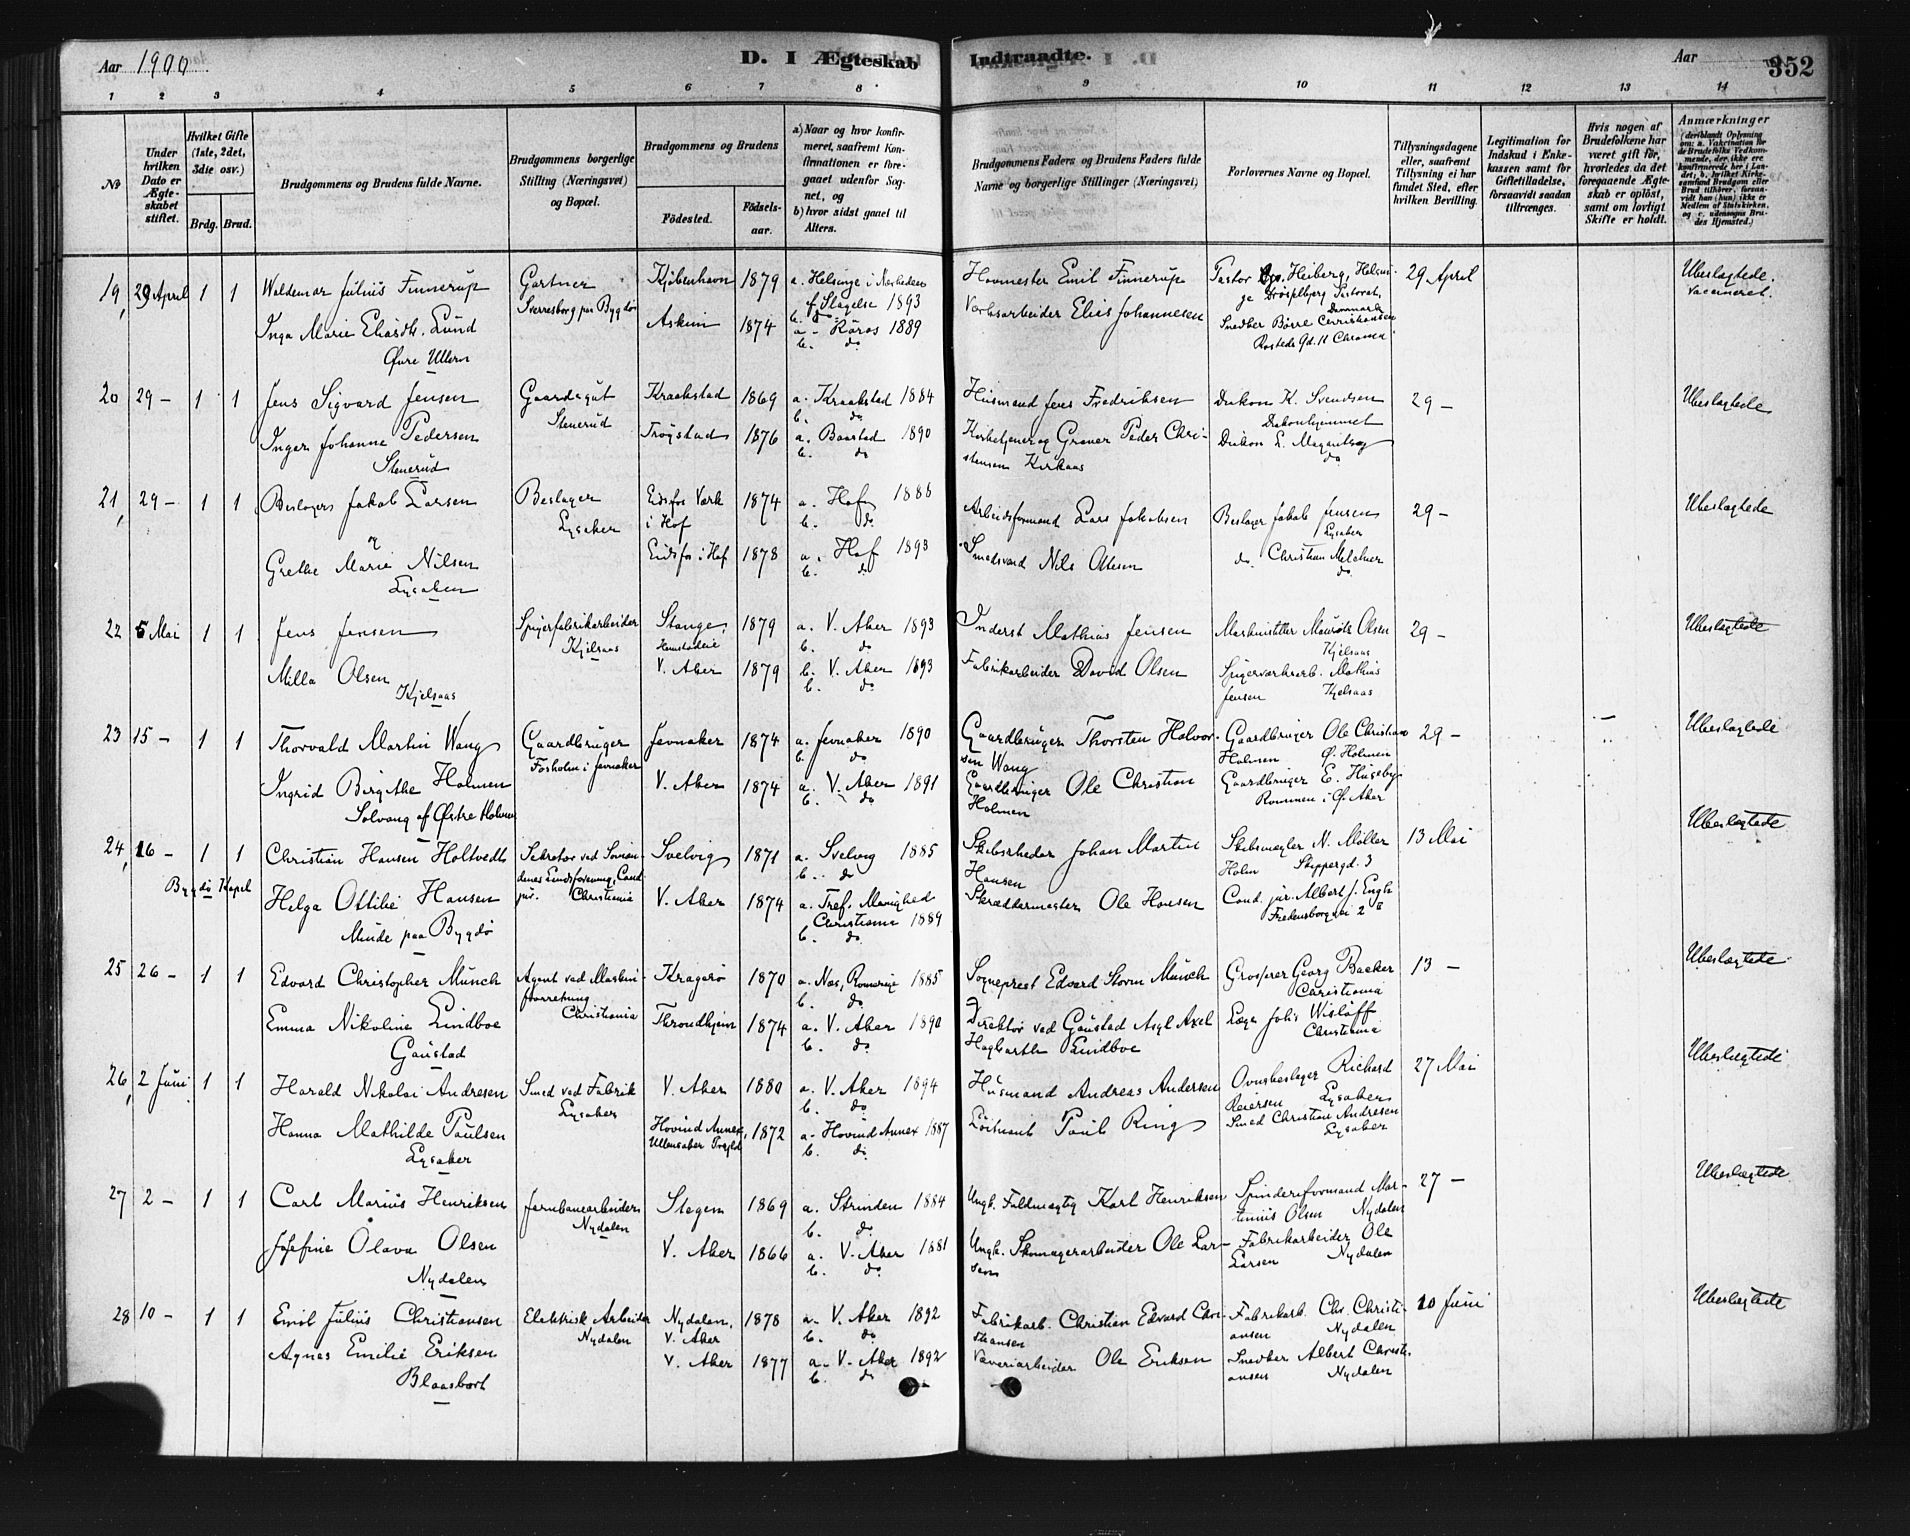 Aar 1900.
D. I Ægteskab Indtraadte.
Aar
352
1 2 3 4 5 6 7 8 9 10 11 12 13 14
No
Under hvilken Dato er Ægteskabet stiftet.
Hvilket Gifte (1ste, 2det, 3die osv.)
Brdg. Brud.
Brudgommens og Brudens fulde Navne.
Brudgommens borgerlige Stilling (Næringsvei) og Bopæl.
Brudgommens og Brudens
Födested.
Födselsaar.
a) Naar og hvor konfirmeret, saafremt Konfirmationen er foregaaet udenfor Sognet, og
b) hvor sidst gaaet til Alters.
Brudgommens Faders og Brudens Faders fulde Navne og borgerlige Stillinger (Næringsvei)
Forlovernes Navne og Bopæl.
Tillysningsdagene eller, saafremt Tillysning ei har fundet Sted, efter hvilken Bevilling.
Legitimation for Indskud i Enkekassen samt for Giftetilladelse, forsaavidt saadan tiltrænges.
Hvis nogen af Brudefolkene har været gift før, hvorledes da det foregaaende Ægteskab er opløst, samt om lovligt Skifte er holdt.
Anmærkninger
19, 29 April 1 1 Waldemar Julius Finnerup Gartner Kjöbenhavn 1879 a. Helsinge i Næsheden Hovmester Emil Finnerup Pastor Heiberg, Helsin- 29 April Ubeslægtede.
Sverresborg paa Bygdö f. Slagelse 1893 ge Drösselbjerg Pastorat, Danmark vaccineret.
b. do
Inga Marie Elisdtr. Lund Askim 1874 a. Röros 1889 Værksarbeider Elies Johannesen Snedker Börre Christiansen
Øvre Ullern b. do Rostedsgd. 11 Chrania
20 29 - 1 1 Jens Sigvard Jensen Gaardsgut Kraakstad 1869 a. Kraakstad 1884 Husmand Jens Fredriksen Diakon K. Svendsen 29 - Ubeslægtede
Stenerud b. do Diakonhjemmet
Inger Johanne Pedersen Trögstad 1876 a. Baastad 1890 Kirketjener og Graver Peder Chri- Diakon L.
Stenerud b. do stensen Kirkaas do
21, 29 - 1 1 Beslagers Jakob Larsen Beslager Eidsfos Værk 1874 a. Hof 1888 Arbeidsformand Lars Jakobsen Beslager Jakob Jensen 29 - Ubeslægtede
og Lysaker i Hof b. do Lysaker
Grethe Marie Nilsen Eidsfos i Hof 1878 a. Hof 1893 Smedsvend Nils Olesen do. Christian Melchner
Lysaker b. do do.
22 5 Mai 1 1 Jens Jensen Spigerfabrikarbeider Stange, 1879 a. V. Aker 1893 Inderst Mathias Jensen Maskinstiller Mauritz Olsen 29 - Ubeslægtede
Kjelsaas b. do Kjelsaas
Milla Olsen V. Aker 1879 b. V. Aker 1893 Fabrikarbeider David Olsen Spigerværksarb. Mathias
Kjelsaas b. do Jensen Kjelsaas
23 15 - 1 1 Thorvald Martin Wang Gaardbruger Jevnaker 1874 a. Jevnaker 1890 Gaardbruger Thorsten Halvor- Gaardbruger Ole Christian 29 - Ubeslægtede
Fosholm i Jevnaker b. do sen Wang Holmen Ø. Holmen
Ingrid Birgithe Holmen V. Aker 1874 a. V. Aker 1891 Gaardbruger Ole Christian Gaardbruger E. Huseby
Solvang af Østre Holmen b. do Holmen Rommen i Ø. Aker
24, 16 - 1 1 Christian Hansen Holtvedt Sekretær ved Sömæn- Svelvig 1871 a. Svelvig 1885 Skibsrheder Johan Martin Skibsmægler N. Möller 13 Mai Ubeslægtede
Bygdö Kapel denes Landsforening, Cand. b. do Hansen Holm Skippergd. 3
Helga Ottilie Hansen jur. Christiania V. Aker 1874 a. Tref. Menighed Skræddermester Ole Hansen Cand. jur. Albert J. Engh
Minde paa Bygdö Christiania 1889 Fredensborgvei 2 II
b. do
25 26 - 1 1 Edvard Christopher Munch Agent ved Maskin- Kragerö 1870 a. Næs, Romerige 1885 Sogneprest Edvard Storm Munch Grosserer Georg Backer 13 - Ubeslægtede.
forretning b. do Christiania
Emma Nikoline Lindboe Christiania Throndhjem 1874 a. V. Aker 1890 Direktör ved Gaustad Asyl Axel Læge Johs Wisløff
Gaustad b. do Hagbarth Lindboe Christiania
26, 2 Juni 1 1 Harald Nikolai Andresen Smed ved Fabrik V. Aker 1880 a. V. Aker 1894 Husmand Andreas Andersen Ovnsbeslager Richard 27 Mai Ubeslægtede
Lysaker b. do Reiersen Lysaker
Hanna Mathilde Paulsen Hovind Annex, 1872 a. Hovind Annex 1887 Löitnant Paul Ring Smed Christian Andresen
Lysaker Ullensaker Prgjld. b. do Lysaker
27 2 - 1 1 Carl Marius Henriksen Jernbanearbeider Stegen 1869 a. Strinden 1884 Ungk. Fuldmægtig Karl Henriksen Spinderiformand Mar- 27 - Ubeslægtede
Nydalen b. do tinius Olsen Nydalen
Josefine Olava Olsen V. Aker 1866 a. V. Aker 1881 Ungk. Skomagerarbeider Ole Lar- Fabrikarbeider Ole
Nydalen b. do sen Larsen Nydalen
28 10 - 1 1 Emil Julius Christiansen Elektrisk Arbeider Nydalen, 1878 a. V. Aker 1892 Fabrikarb. Christian Edvard Chri- Fabrikarb. Chr. Christi- 10 Juni Ubeslægtede
Nydalen V. Aker b. do stiansen ansen Nydalen
Agnes Emilie Eriksen V. Aker 1877 a. V. Aker 1892 Væveriarbeider Ole Eriksen Snedker Albert Christi-
Blaasbort b. do ansen Nydalen